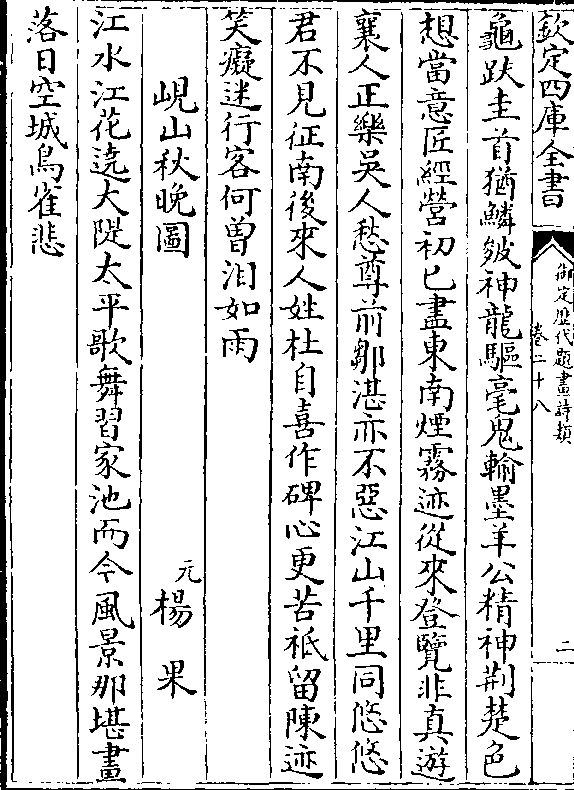 欽定四庫全書
御定歴代題畫詩類
卷二十八
二
龜趺圭首猶鱗皴神龍驅毫鬼輸墨羊公精神荆楚色
想當意匠經營初已盡東南煙霧迹從來登覽非真遊
襄人正樂吳人愁尊前鄒湛亦不惡江山千里同悠悠
君不見征南後來人姓杜自喜作碑心更苦祇留陳迹
笑癡迷行客何曾泪如雨
峴山秋晚圖
元楊果
江水江花遶大隄太平歌舞習家池而今風景那堪畫
落日空城鳥雀悲